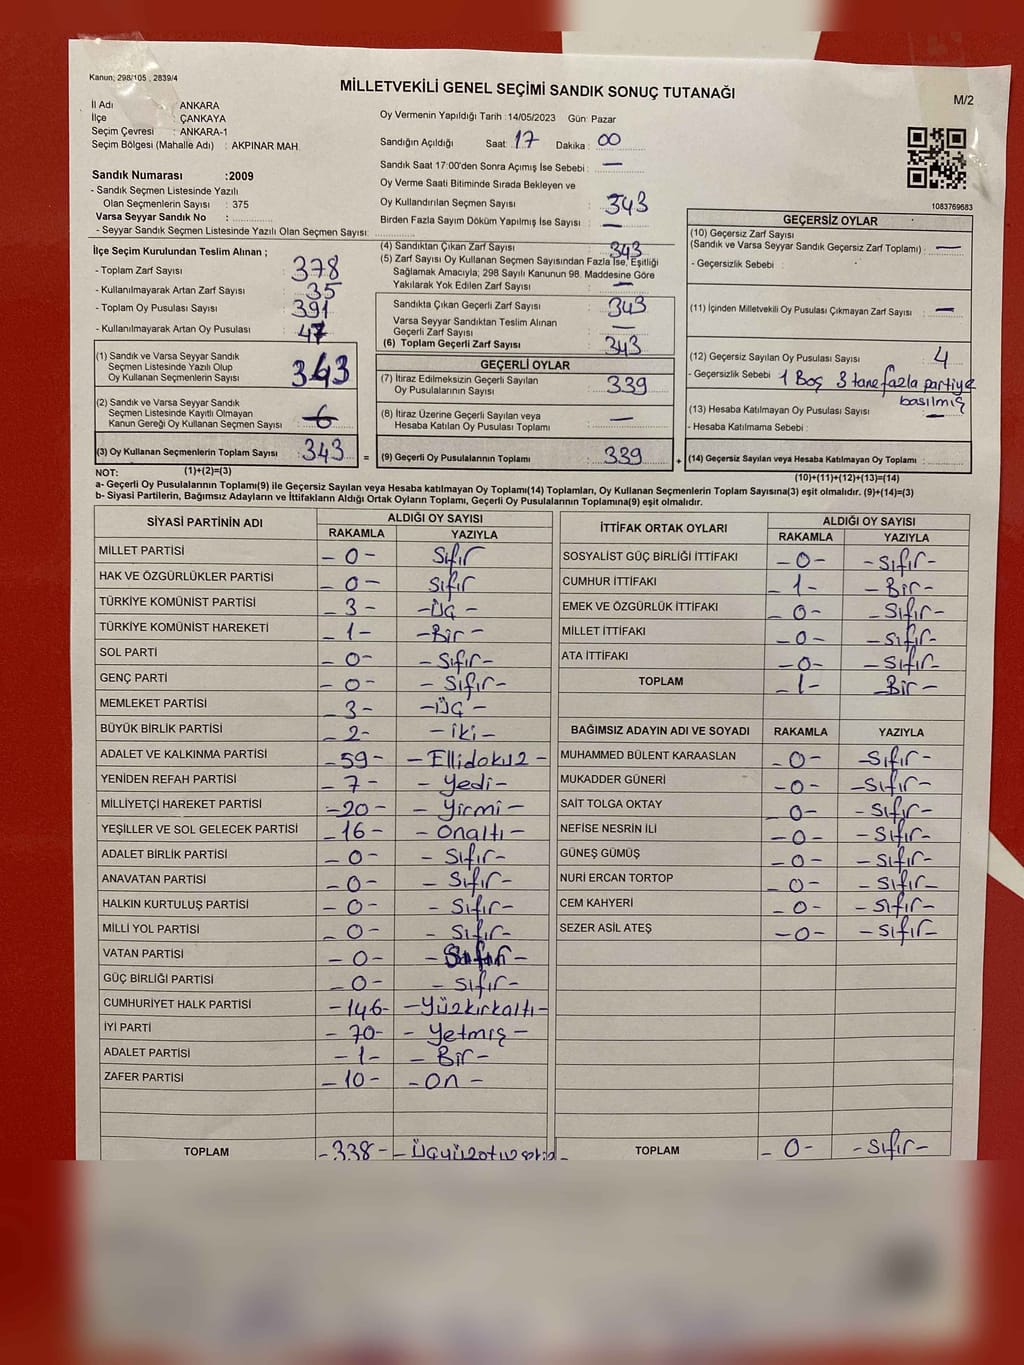 Kanun; 298/105 , 2839/4
MİLLETVEKİLİ GENEL SEÇİMİ SANDIK SONUÇ TUTANAĞI
M/2
İl Adı : ANKARA
İlçe : ÇANKAYA
Seçim Çevresi : ANKARA-1
Seçim Bölgesi (Mahalle Adı) : AKPINAR MAH.
Sandık Numarası :2009
- Sandık Seçmen Listesinde Yazılı
Olan Seçmenlerin Sayısı : 375
Varsa Seyyar Sandık No :
- Seyyar Sandık Seçmen Listesinde Yazılı Olan Seçmen Sayısı:
Oy Vermenin Yapıldığı Tarih : 14/05/2023 Gün: Pazar
Sandığın Açıldığı Saat: 17 Dakika : 00
Sandık Saat 17:00'den Sonra Açımış İse Sebebi : —
Oy Verme Saati Bitiminde Sırada Bekleyen ve
Oy Kullandırılan Seçmen Sayısı : 343
Birden Fazla Sayım Döküm Yapılmış İse Sayısı : —
1083769683
İlçe Seçim Kurulundan Teslim Alınan ;
- Toplam Zarf Sayısı : 378
- Kullanılmayarak Artan Zarf Sayısı : 35
- Toplam Oy Pusulası Sayısı : 391
- Kullanılmayarak Artan Oy Pusulası : 47
(1) Sandık ve Varsa Seyyar Sandık
Seçmen Listesinde Yazılı Olup
Oy Kullanan Seçmenlerin Sayısı : 343
(2) Sandık ve Varsa Seyyar Sandık
Seçmen Listesinde Kayıtlı Olmayan
Kanun Gereği Oy Kullanan Seçmen Sayısı :
(3) Oy Kullanan Seçmenlerin Toplam Sayısı : 343 =
(4) Sandıktan Çıkan Zarf Sayısı : 343
(5) Zarf Sayısı Oy Kullanan Seçmen Sayısından Fazla İse, Eşitliği
Sağlamak Amacıyla; 298 Sayılı Kanunun 98. Maddesine Göre
Yakılarak Yok Edilen Zarf Sayısı : —
Sandıkta Çıkan Geçerli Zarf Sayısı : 343
Varsa Seyyar Sandıktan Teslim Alınan
Geçerli Zarf Sayısı : —
(6) Toplam Geçerli Zarf Sayısı : 343
GEÇERLİ OYLAR
(7) İtiraz Edilmeksizin Geçerli Sayılan
Oy Pusulasının Sayısı : 339
(8) İtiraz Üzerine Geçerli Sayılan veya
Hesaba Katılan Oy Pusulası Toplamı : —
(9) Geçerli Oy Pusulalarının Toplamı : 339 +
GEÇERSİZ OYLAR
(10) Geçersiz Zarf Sayısı
(Sandık ve Varsa Seyyar Sandık Geçersiz Zarf Toplamı) : —
- Geçersizlik Sebebi :
(11) İçinden Milletvekili Oy Pusulası Çıkmayan Zarf Sayısı : —
(12) Geçersiz Sayılan Oy Pusulası Sayısı : 4
- Geçersizlik Sebebi : 1 Boş 3 tane fazla partiye
basılmış
(13) Hesaba Katılmayan Oy Pusulası Sayısı : —
- Hesaba Katılmama Sebebi :
(14) Geçersiz Sayılan veya Hesaba Katılmayan Oy Pusulası Toplamı :
NOT: (1)+(2)=(3)
(10)+(11)+(12)+(13)=(14)
a- Geçerli Oy Pusulalarının Toplamı(9) ile Geçersiz Sayılan veya Hesaba katılmayan Oy Toplamı(14) Toplamları, Oy Kullanan Seçmenlerin Toplam Sayısına(3) eşit olmalıdır. (9)+(14)=(3)
b- Siyasi Partilerin, Bağımsız Adayların ve İttifakların Aldığı Ortak Oyların Toplamı, Geçerli Oy Pusulalarının Toplamına(9) eşit olmalıdır.
SİYASİ PARTİNİN ADI ALDIĞI OY SAYISI
RAKAMLA YAZIYLA
MİLLET PARTİSİ - 0 - Sıfır
HAK VE ÖZGÜRLÜKLER PARTİSİ - 0 - Sıfır
TÜRKİYE KOMÜNİST PARTİSİ - 3 - - Üç -
TÜRKİYE KOMÜNİST HAREKETİ - 1 - - Bir -
SOL PARTİ - 0 - - Sıfır -
GENÇ PARTİ - 0 - - Sıfır -
MEMLEKET PARTİSİ - 3 - - Üç -
BÜYÜK BİRLİK PARTİSİ - 2 - - iki -
ADALET VE KALKINMA PARTİSİ - 59 - - Ellidokuz -
YENİDEN REFAH PARTİSİ - 7 - - Yedi -
MİLLİYETÇİ HAREKET PARTİSİ - 20 - - Yirmi -
YEŞİLLER VE SOL GELECEK PARTİSİ - 16 - - Onaltı -
ADALET BİRLİK PARTİSİ - 0 - - Sıfır -
ANAVATAN PARTİSİ - 0 - - Sıfır -
HALKIN KURTULUŞ PARTİSİ - 0 - - Sıfır -
MİLLİ YOL PARTİSİ - 0 - - Sıfır -
VATAN PARTİSİ - 0 -
GÜÇ BİRLİĞİ PARTİSİ - 0 - - Sıfır -
CUMHURİYET HALK PARTİSİ - 146 - - Yüzkırkaltı -
İYİ PARTİ - 70 - - Yetmiş -
ADALET PARTİSİ - 1 - - Bir -
ZAFER PARTİSİ - 10 - - On -
TOPLAM - 338 -
İTTİFAK ORTAK OYLARI ALDIĞI OY SAYISI
RAKAMLA YAZIYLA
SOSYALİST GÜÇ BİRLİĞİ İTTİFAKI - 0 - - Sıfır -
CUMHUR İTTİFAKI - 1 - - Bir -
EMEK VE ÖZGÜRLÜK İTTİFAKI - 0 - - Sıfır -
MİLLET İTTİFAKI - 0 - - Sıfır -
ATA İTTİFAKI - 0 - - Sıfır -
TOPLAM - 1 - Bir -
BAĞIMSIZ ADAYIN ADI VE SOYADI RAKAMLA YAZIYLA
MUHAMMED BÜLENT KARAASLAN - 0 - - Sıfır -
MUKADDER GÜNERİ - 0 - - Sıfır -
SAİT TOLGA OKTAY 0 - - Sıfır -
NEFİSE NESRİN İLİ - 0 - - Sıfır -
GÜNEŞ GÜMÜŞ - 0 - - Sıfır -
NURİ ERCAN TORTOP - 0 - - Sıfır -
CEM KAHYERİ - 0 - - Sıfır -
SEZER ASİL ATEŞ - 0 - - Sıfır -
TOPLAM - 0 - - Sıfır -